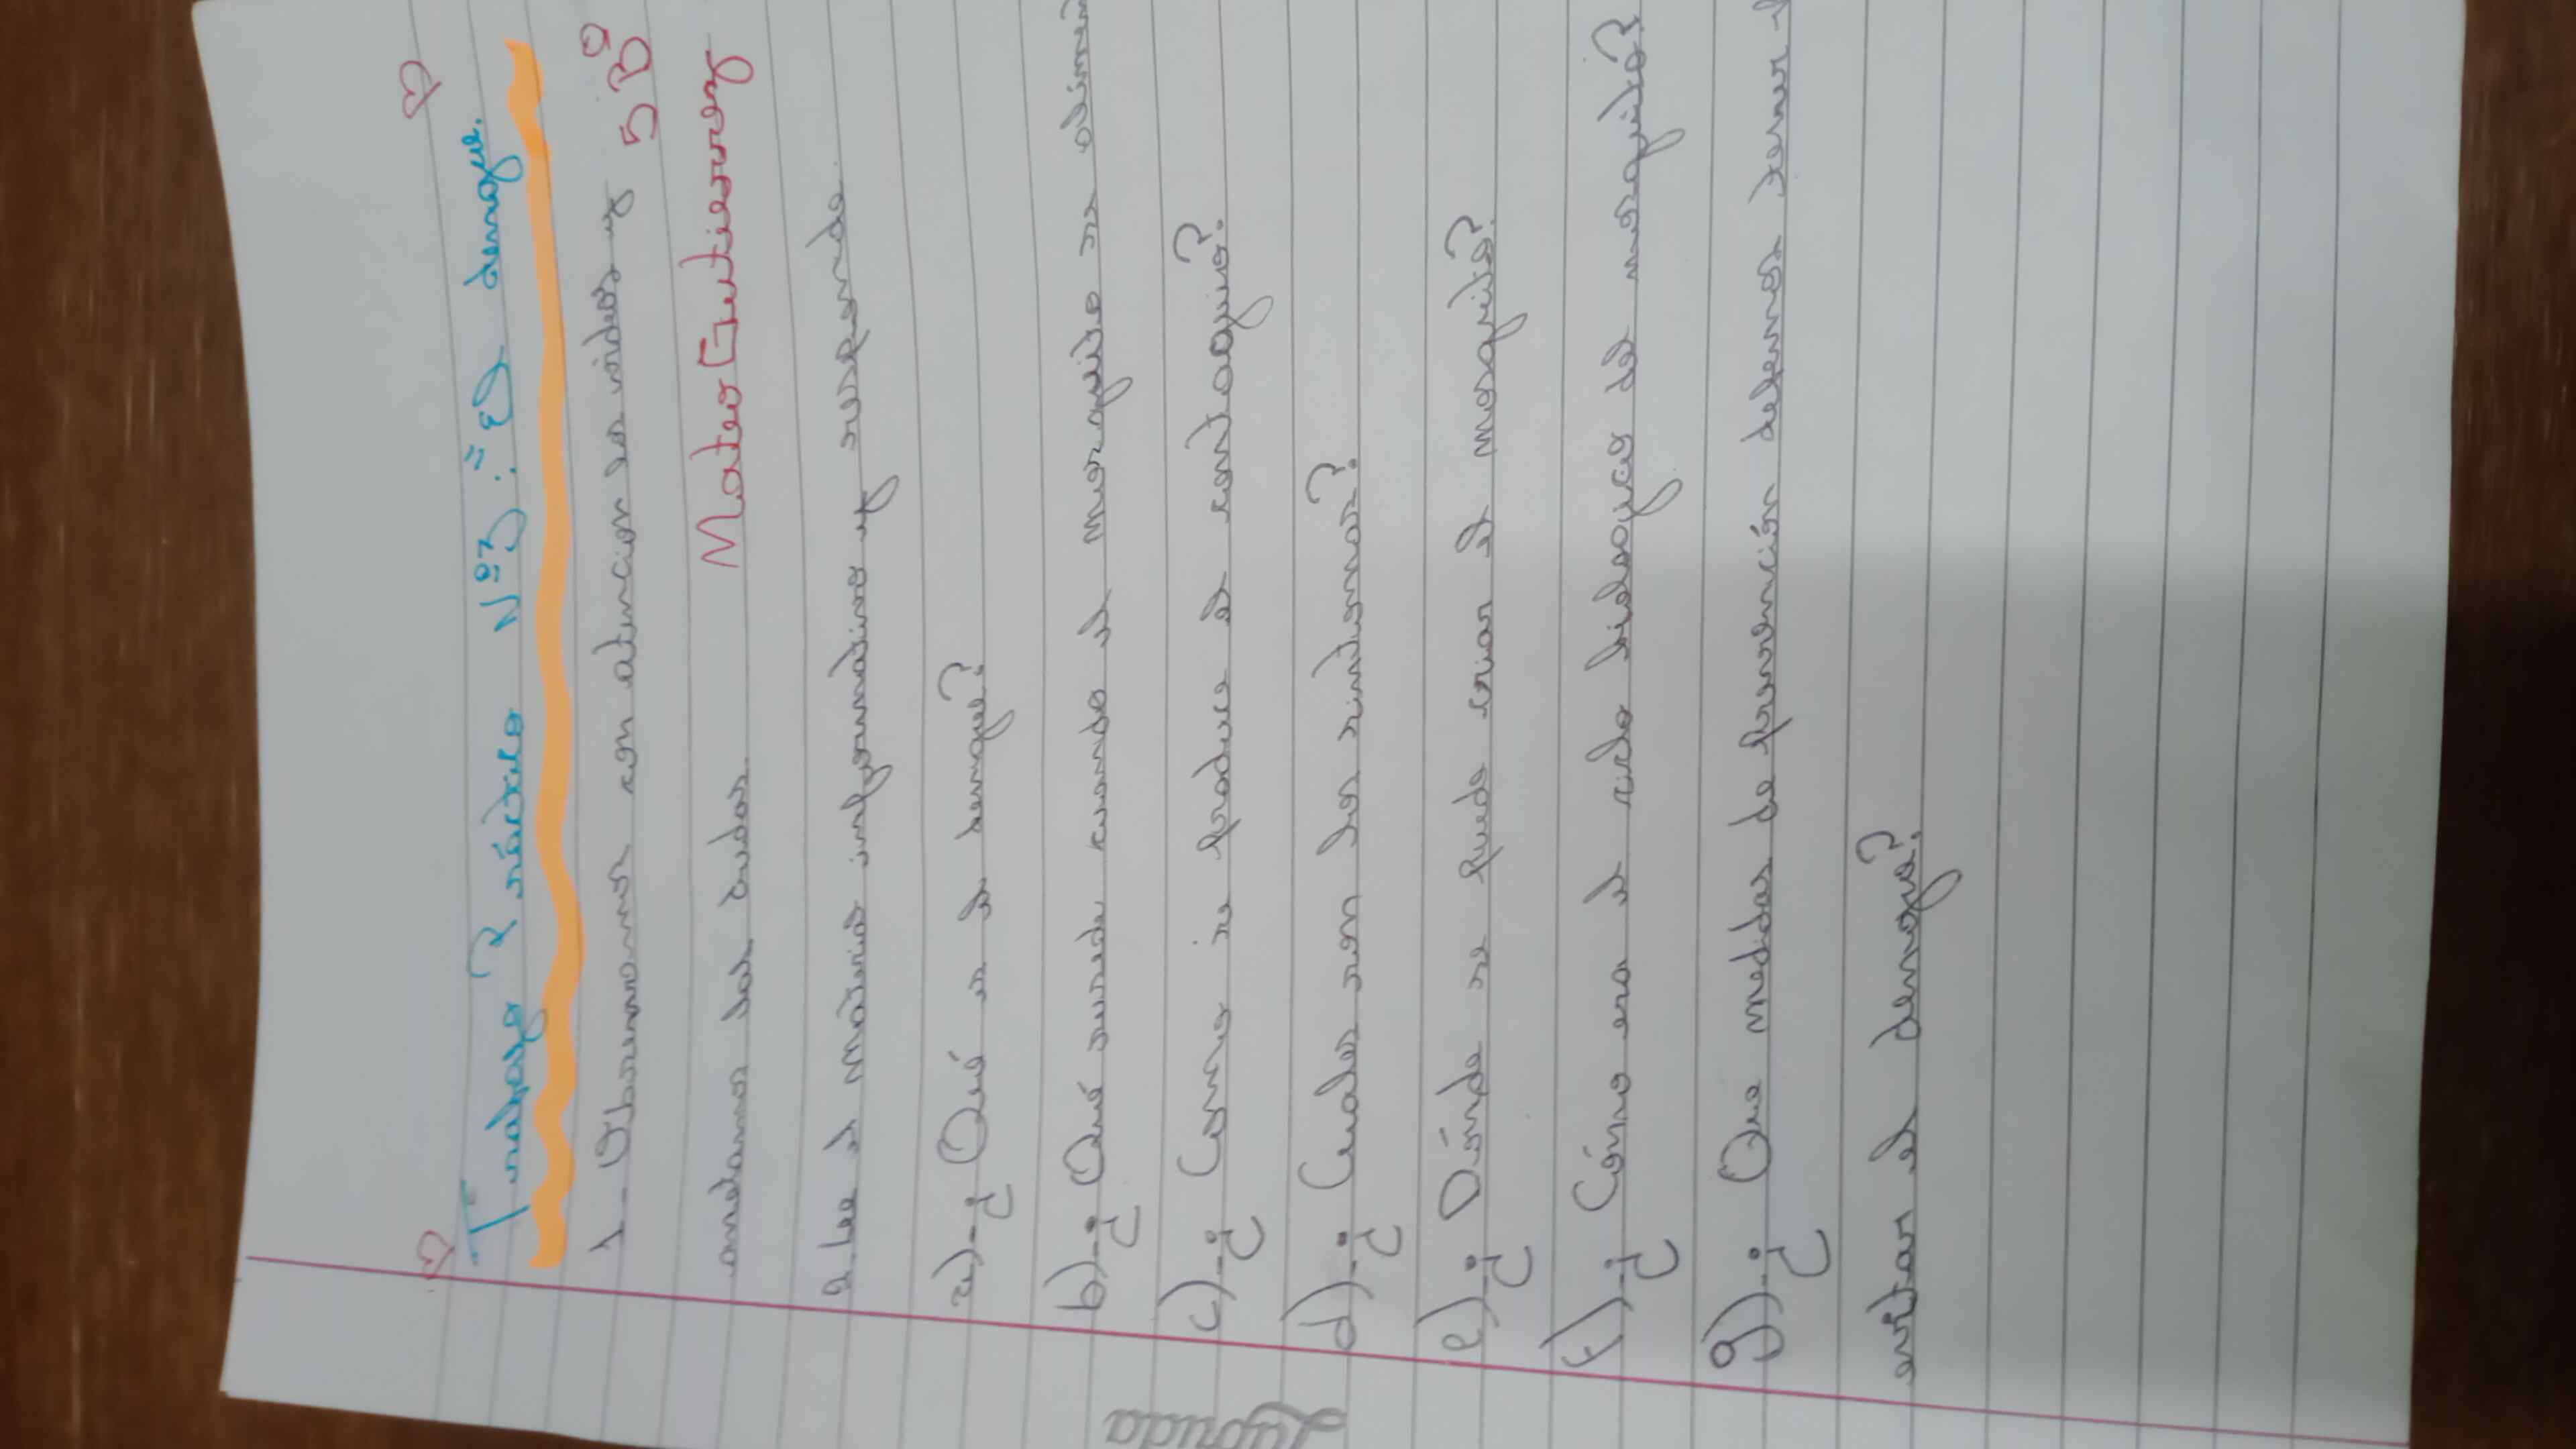 Trabajo Práctico Nº3: "El dengue.
1- Observamos con atencion los videos y
5Bº
anotamos las dudas.
Mateo Gutierrez
2 lee el material informativo y responde
a)-¿Qué es el dengue?
b)-¿Qué sucede cuando el mosquito se alimen
c)-¿Como se produce el contagio?
d)-¿Cuales son los sintomas?
e)-¿Dónde se puede criar el mosquito?
f)-¿Cómo era el ciclo biologico del mosquito?
g)-¿Que medidas de prevención debemos tener
evitar el dengue?